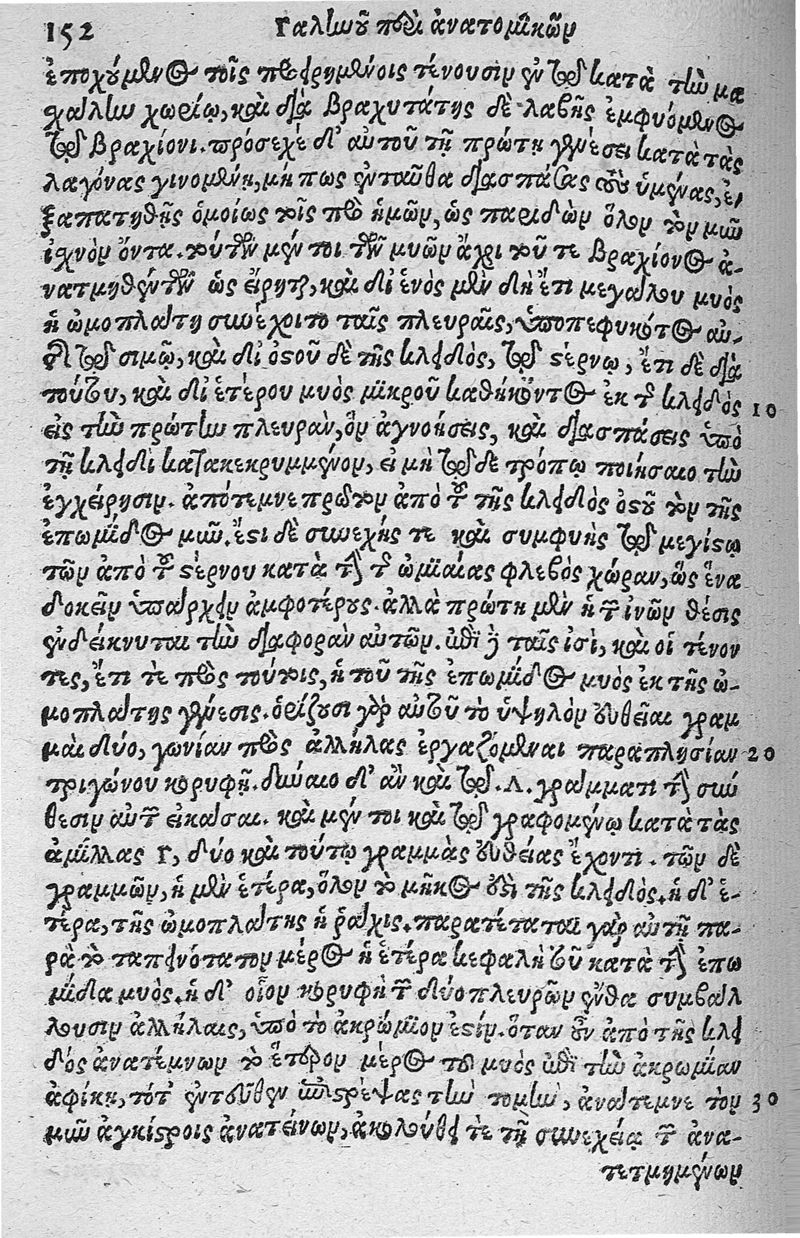 152 Γαλιωοῦ περὶ ἀνατομικῶν
ἐποχούμενος τοῖς προειρημένοις τένουσιν ἐν τῷ κατὰ τὴν μα
χάλην χωρίῳ, καὶ διὰ βραχυτάτης δὲ λαβῆς ἐμφυόμενος
τῷ βραχίονι. πρόσεχέ δ' αὐτοῦ τῇ πρώτῃ γενέσει κατὰ τὰς
λαγόνας γινομένῃ, μή πως ἐνταῦθα διασπάσας τοὺς ὑμένας, ἐ
ξαπατηθῇς ὁμοίως τοῖς πρὸ ἡμῶν, ὡς παριδὼν ὅλον τὸν μῦν
ἰχνὸν ὄντα. τούτων μέν τοι τῶν μυῶν ἄχρι τοῦ τε βραχίονος ἀ-
νατμηθέντων ὡς εἴρηται, καὶ δι' ἑνὸς μὲν δὴ ἔτι μεγάλου μυὸς
ἡ ὠμοπλάτη συνέχοιτο ταῖς πλευραῖς, ὑποπεφυκότος αὐ-
τῆς τῷ σιμῷ, καὶ δι' ὀστοῦ δὲ τῆς κλειδὸς, τῷ στέρνῳ, ἔτι δὲ διὰ
τούτου, καὶ δι' ἑτέρου μυὸς μικροῦ καθήκοντος ἐκ τῆς κλειδὸς 10
εἰς τὴν πρώτην πλευρὰν, ὃν ἀγνοήσεις, καὶ διασπάσεις ὑπὸ
τῇ κλειδὶ κατακεκρυμμένον, εἰ μὴ τῷδε τρόπῳ ποιήσαιο τὴν
ἐγχείρησιν. ἀπότεμνε πρῶτον ἀπὸ τοῦ τῆς κλειδὸς ὀστοῦ τὸν τῆς
ἐπωμίδος μῦν. ἔστι δὲ συνεχής τε καὶ συμφυὴς τῷ μεγίστῳ
τῶν ἀπὸ τοῦ στέρνου κατὰ τὴν τῆς ὠμιαίας φλεβὸς χώραν, ὥς ἕνα
δοκεῖν ὑπάρχειν ἀμφοτέρους. ἀλλὰ πρώτη μὲν ἡ τῶν ἰνῶν θέσις
ἐνδείκνυται τὴν διαφορὰν αὐτῶν. ἐπὶ δὲ ταῖς ἰσὶ, καὶ οἱ τένον
τες, ἔτι τε πρὸς τούτοις, ἡ τοῦ τῆς ἐπωμίδος μυὸς ἐκ τῆς ὠ-
μοπλάτης γένεσις. ὁρίζουσι γὰρ αὐτοῦ τὸ ὑψηλὸν εὐθεῖαι γραμ
μαὶ δύο, γωνίαν πρὸς ἀλλήλας ἐργαζόμεναι παραπλησίαν 20
τριγώνου κορυφῇ. δύναιο δ' ἂν καὶ τῷ .Λ. γράμματι τὴν σύν
θεσιν αὐτῶν εἰκάσαι. καὶ μέν τοι καὶ τῷ γραφομένῳ κατὰ τὰς
ἁμίλλας Γ, δύο καὶ τούτῳ γραμμὰς εὐθείας ἔχοντι. τῶν δὲ
γραμμῶν, ἡ μὲν ἑτέρα, ὅλον τὸ μῆκος ἐστὶ τῆς κλειδὸς. ἡ δ' ἑ-
τέρα, τῆς ὠμοπλάτης ἡ ῥάχις. παρατέταται γὰρ αὐτῇ πα-
ρὰ τὸ ταπεινότατον μέρος ἡ ἑτέρα κεφαλὴ τοῦ κατὰ τὴν ἐπω
μίδα μυὸς. ἡ δ' οἷον κορυφὴ τῶν δύο πλευρῶν ἔνθα συμβάλ
λουσιν ἀλλήλαις, ὑπὸ τὸ ἀκρώμιον ἐστίν. ὅταν οὖν ἀπὸ τῆς κλει
δὸς ἀνατέμνων τὸ ἕτερον μέρος του μυὸς ἐπὶ τὴν ἀκρωμίαν
ἀφίκῃ, τότ' ἐντεῦθεν ἐπιστρέψας τὴν τομὴν, ἀνάτεμνε τὸν 30
μῦν ἀγκίστροις ἀνατείνων, ἀκολούθει τε τῇ συνεχείᾳ τῶν ἀνα-
τετμημένων